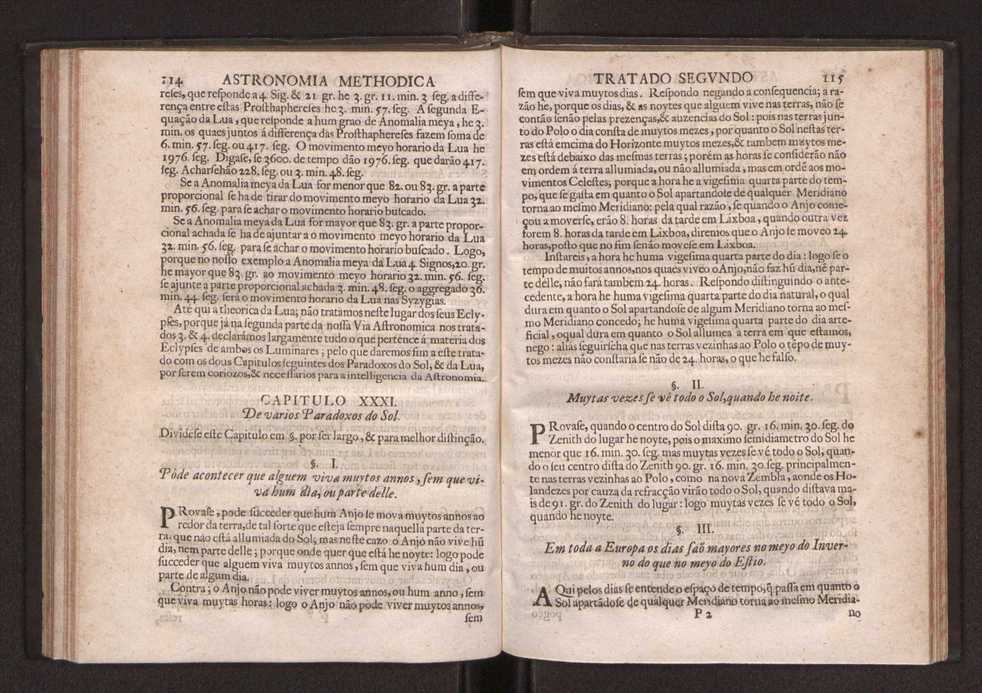 114 ASTRONOMIA METHODICA
reses, que responde a 4 Sig. & 21 gr. he 3. gr. 11. min. 3 seg. a diffe-
rença entre estas Prosthaphereses he 3. min. 57. seg. A segunda E-
quação da Lua, que responde a hum grao de Anomalia meya, he 3.
min. os quaes juntos á differença das Prosthaphereses fazem soma de
6. min. 57. seg. ou 417. seg. O movimento meyo horario da Lua he
1976. seg. Digase, se 3600. de tempo dão 1976. seg. que darão 417.
seg. Acharsehão 228. seg. ou 3. min. 48. seg.
Se a Anomalia meya da Lua for menor que 82. ou 83. gr. a parte
proporcional se ha de tirar do movimento meyo horario da Lua 32.
min. 56. seg. para se achar o movimento horario buscado.
Se a Anomalia meya da Lua for mayor que 83. gr. a parte propor-
cional achada se ha de ajuntar a o movimento meyo horario da Lua
32. min. 56. seg. para se achar o movimento horario buscado. Logo,
porque no nosso exemplo a Anomalia meya da Lua 4 Signos, 20. gr.
he mayor que 83. gr. ao movimento meyo horario 32. min. 56. seg.
se ajunte a parte proporcional achada 3. min. 48. seg. o aggregado 36.
min. 44. seg. será o movimento horario da Lua nas Syzygias.
Até qui a theorica da Lua; não tratámos neste lugar dos seus Ecly-
pses, porque já na segunda parte da nossa Via Astronomica nos trata-
dos 3. & 4. declarámos largamente tudo o que pertence á materia dos
Eclypses de ambos os Luminares; pelo que daremos fim a este trata-
do com os dous Capitulos seguintes dos Paradoxos do Sol, & da Lua,
por serem coriozos, & necessarios para a intelligencia da Astronomia.
CAPITULO XXXI.
De varios Paradoxos do Sol.
Dividese este Capitulo em §. por ser largo, & para melhor distinção.
§. I.
Póde acontecer que alguem viva muytos annos, sem que vi-
va hum dia, ou parte delle.
PRovase, pode succeder que hum Anjo se mova muytos annos ao
redor da terra, de tal sorte que esteja sempre naquella parte da ter-
ra, que não está allumiada do Sol; mas neste cazo o Anjo não vive hũ
dia, nem parte delle; porque onde quer que está he noyte: logo pode
succeder que alguem viva muytos annos, sem que viva hum dia, ou
parte de algum dia.
Contra; o Anjo não pode viver muytos annos, ou hum anno, sem
que viva muytas horas: logo o Anjo não pode viver muytos annos,
sem
TRATADO SEGVNDO 115
sem que viva muytos dias. Respondo negando a consequencia; a ra-
zão he, porque os dias, & as noytes que alguem vive nas terras, não se
contão senão pelas prezenças, & auzencias do Sol: pois nas terras jun-
to do Polo o dia consta de muytos mezes, por quanto o Sol nestas ter-
ras está emcima do Horizonte muytos mezes, & tambem muytos me-
zes está debaixo das mesmas terras; porém as horas se considerão não
em ordem á terra allumiada, ou não allumiada, mas em ordẽ aos mo-
vimentos Celestes, porque a hora he a vigesima quarta parte do tem-
po, que se gasta em quanto o Sol apartandose de qualquer Meridiano
torna ao mesmo Meridiano: pela qual razão, se quando o Anjo come-
çou a moverse, erão 8. horas da tarde em Lixboa, quando outra vez
forem 8. horas da tarde em Lixboa, diremos que o Anjo se moveo 24.
horas, posto que no fim senão movese em Lixboa.
Instareis, a hora he huma vigesima quarta parte do dia: logo se o
tempo de muitos annos, nos quaes viveo o Anjo, não faz hũ dia, nẽ par-
te delle, não fará tambem 24. horas. Respondo distinguindo o ante-
cedente, a hora he huma vigesima quarta parte do dia natural, o qual
dura em quanto o Sol apartandose de algum Meridiano torna ao mes-
mo Meridiano concedo; he huma vigesima quarta parte do dia arte-
ficial, o qual dura em quanto o Sol allumea a terra em que estamos,
nego: alias seguirseha que nas terras vezinhas ao Polo o tẽpo de muy-
tos mezes não constaria se não de 24. horas, o que he falso.
§. II.
Muytas vezes se vê todo o Sol, quando he noite.
PRovase, quando o centro do Sol dista 90. gr. 16. min. 30. seg. do
Zenith do lugar he noyte, pois o maximo semidiametro do Sol he
menor que 16. min. 30. seg. mas muytas vezes se vé todo o Sol, quan-
do o seu centro dista do Zenith 90. gr. 16. min. 30. seg. principalmen-
te nas terras vezinhas ao Polo, como na nova Zembla, aonde os Ho-
landezes por cauza da refracção virão todo o Sol, quando distava ma-
is de 91. gr. do Zenith do lugar: logo muytas vezes se vé todo o Sol,
quando he noyte.
§. III.
Em toda a Europa os dias saõ mayores no meyo do Inver-
no do que no meyo do Estio.
AQui pelos dias se entende o espaço de tempo, q̃ passa em quanto o
Sol apartãdose de qualquer Meridiano torna ao mesmo Meridia-
P 2 no